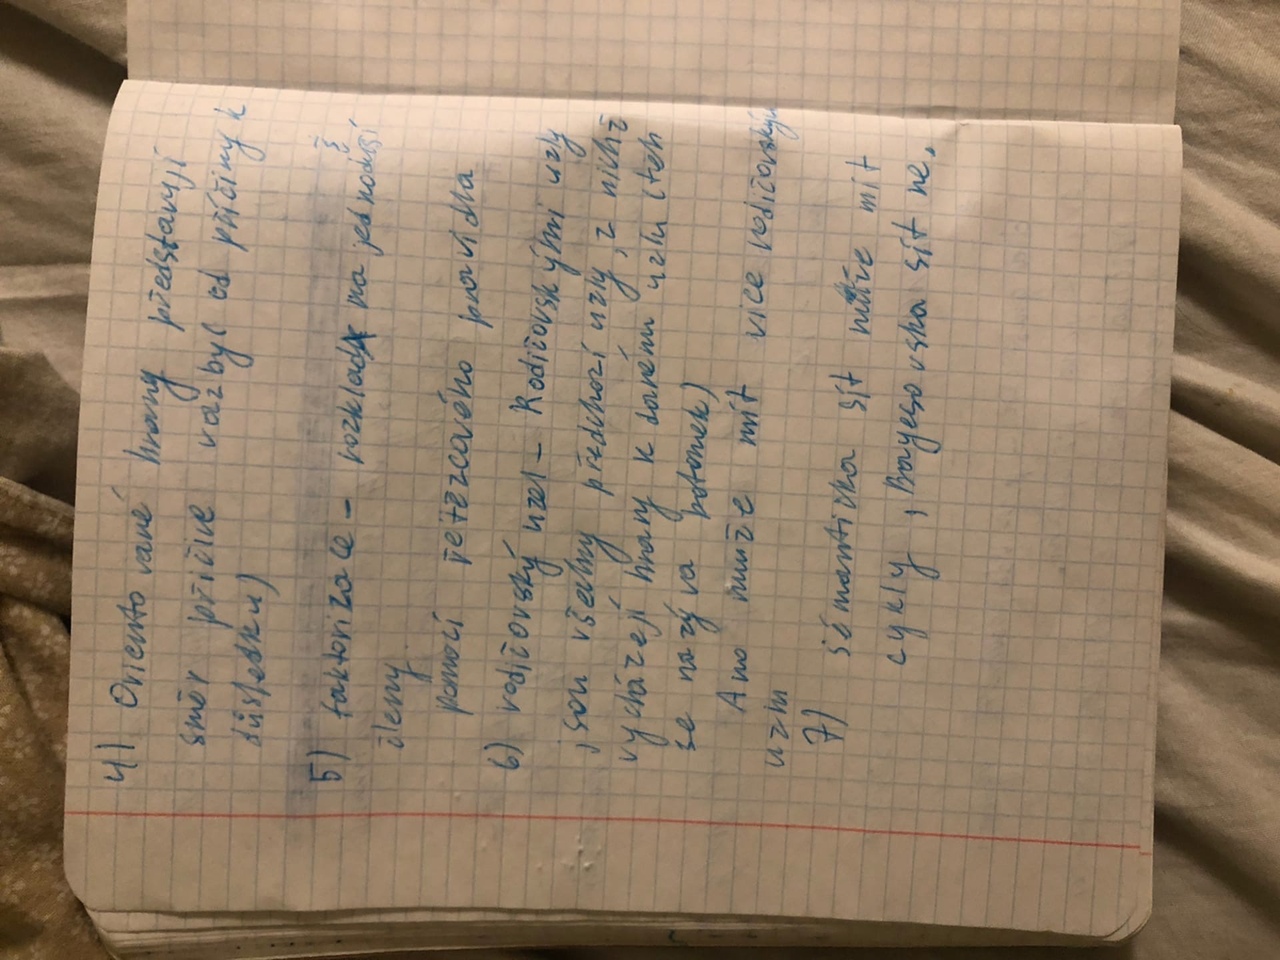 4) Orientované hrany představují
směr příčiné vazby ( od příčiny k
důsledku)
5) faktorizace - rozklad na jednodšší
členy
pomocí řetězcového pravidla
6) rodičovský uzel - Rodičovskými uzly
jsou všechny předchozí uzly, z nichž
vycházejí hrany k danému uzlu (ten
se nazýva potomek)
Ano muže mít vice rodičovským
uzm
7) sémantička síť může mít
cykly, Bayesovska síť ne.